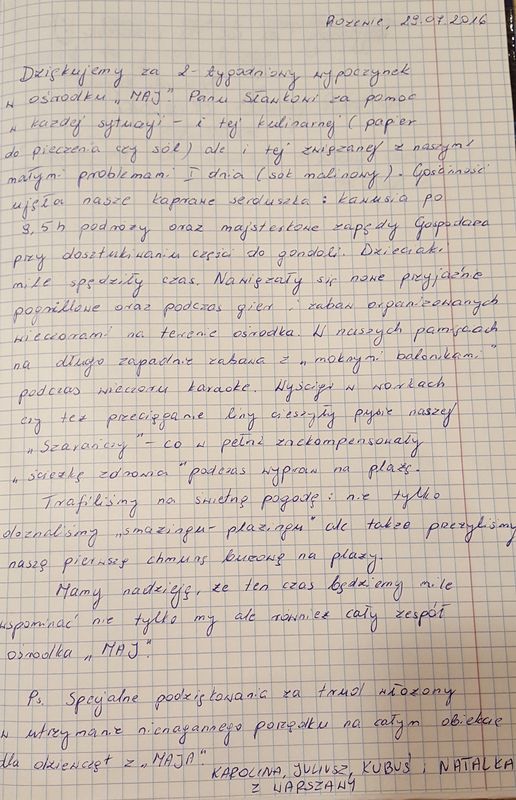 ROZEWIE, 29.07.2016
Dziękujemy za 2-tygodniowy wypoczynek
w ośrodku „MAJ". Panu Sławkowi za pomoc
w każdej sytuacji - i tej kulinarnej (papier
do pieczenia czy sól) ale i tej związanej z naszymi
małymi problemami I dnia (sok malinowy). Gościnność
ujęła nasze kaprawe serduszka: kawusia po
9,5 h podróży oraz majsterkowe zapędy Gospodarza
przy dosztukowaniu części do gondoli. Dzieciaki
mile spędziły czas. Nawiązały się nowe przyjaźnie
pogrillowe oraz podczas gier i zabaw organizowanych
wieczorami na terenie ośrodka. W naszych pamięciach
na długo zapadnie zabawa z „mokrymi balonikami"
podczas wieczoru karaoke. Wyścigi w workach
czy też przeciąganie liny cieszyły pysie naszej
„Szarańczy" - co w pełni zrekompensowały
„ścieżkę zdrowia" podczas wypraw na plażę.
Trafiliśmy na świetną pogodę: nie tylko
doznaliśmy „smażingu-plażingu" ale także przeżyliśmy
naszą pierwszą chmurę burzową na plaży.
Mamy nadzieję, że ten czas będziemy mile
wspominać nie tylko my ale również cały zespół
ośrodka „MAJ".
Ps. Specjalne podziękowania za trud włożony
w utrzymanie nienagannego porządku na całym obiekcie
dla dziewcząt z „MAJA".
KAROLINA, JULIUSZ, KUBUŚ i NATALKA
Z WARSZAWY